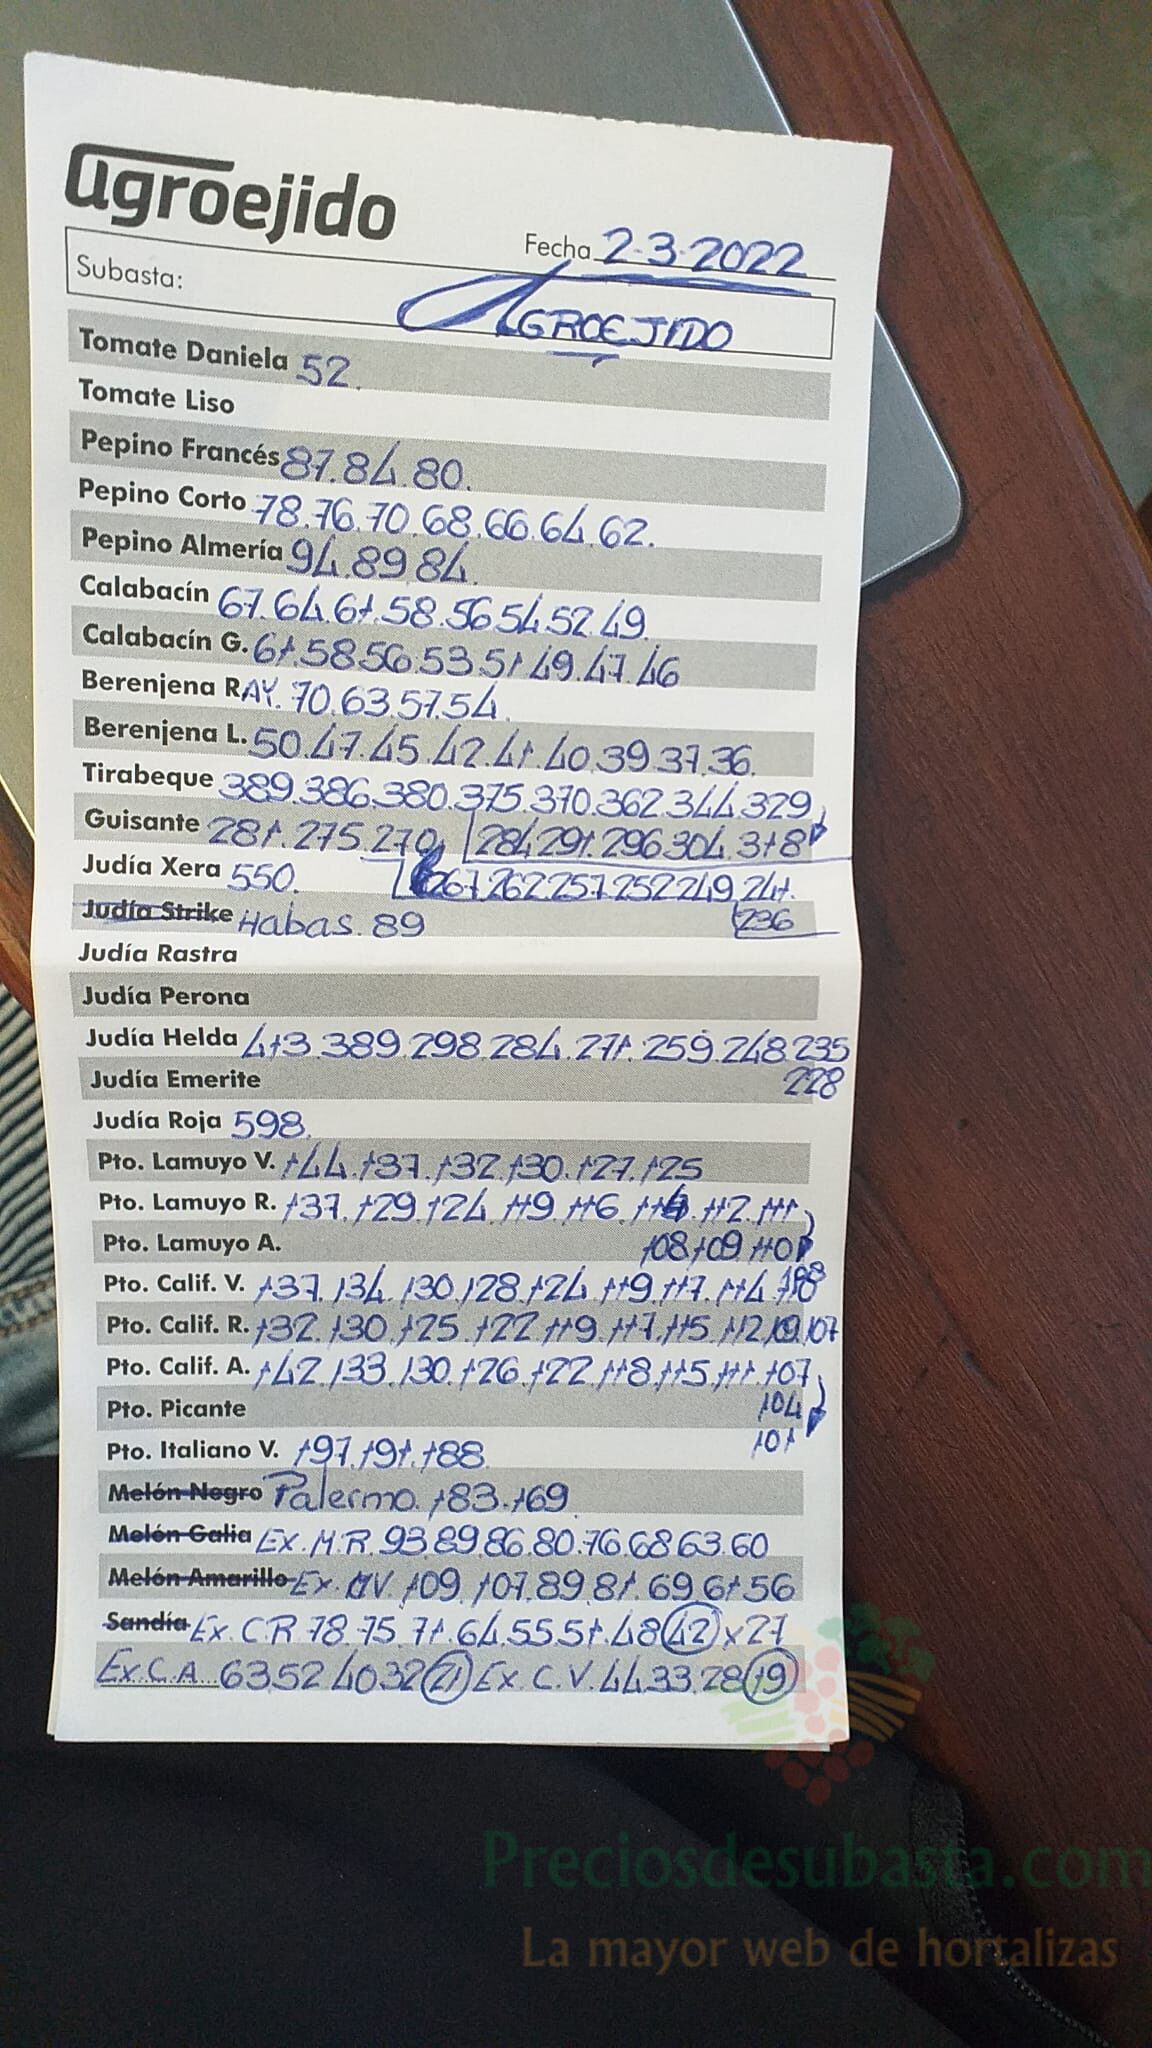 agroejido
Fecha 2-3-2022
Subasta: AGROEJIDO
Tomate Daniela 52.
Tomate Liso
Pepino Francés 87.84.80.
Pepino Corto 78.76.70.68.66.64.62.
Pepino Almería 94.89.84.
Calabacín 67.64.61.58.56.54.52.49.
Calabacín G. 61.58.56.53.51.49.47.46
Berenjena RAY. 70.63.57.54.
Berenjena L. 50.47.45.42.41.40.39.37.36.
Tirabeque 389.386.380.375.370.362.344.329
Guisante 281.275.270. 284.291.296.304.318
Judía Xera 550. 267.262.257.252.249.241.
Judía Strike Habas. 89 236
Judía Rastra
Judía Perona
Judía Helda 413.389.298.284.271.259.248.235
Judía Emerite 228
Judía Roja 598.
Pto. Lamuyo V. 144.137.132.130.127.125
Pto. Lamuyo R. 137.129.124.119.116.114.112.111
Pto. Lamuyo A. 108.109.110
Pto. Calif. V. 137.134.130.128.124.119.117.114.
Pto. Calif. R. 132.130.125.122.119.117.115.112.109.107
Pto. Calif. A. 142.133.130.126.122.118.115.111.107
Pto. Picante 104
101
Pto. Italiano V. 197.191.188.
Melón Negro Palermo. 183.169
Melón Galia Ex.M.R.93.89.86.80.76.68.63.60
Melón Amarillo Ex. V. 109.107.89.81.69.61.56
Sandía Ex.C.R.78.75.71.64.55.51.48 42 x 27
Ex.C.A. 63.52.40.32 21 Ex.C.V.44.33.28 19
Preciosdesubasta.com
La mayor web de hortalizas